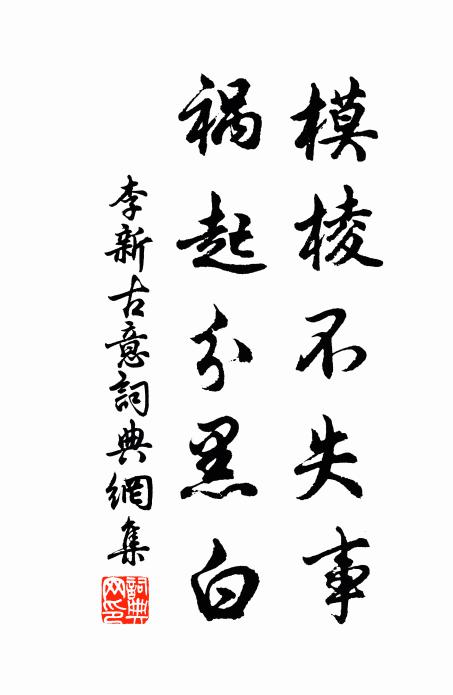 模棱不失事
禍起分黑白
李新古意詞典網集
詞典网印